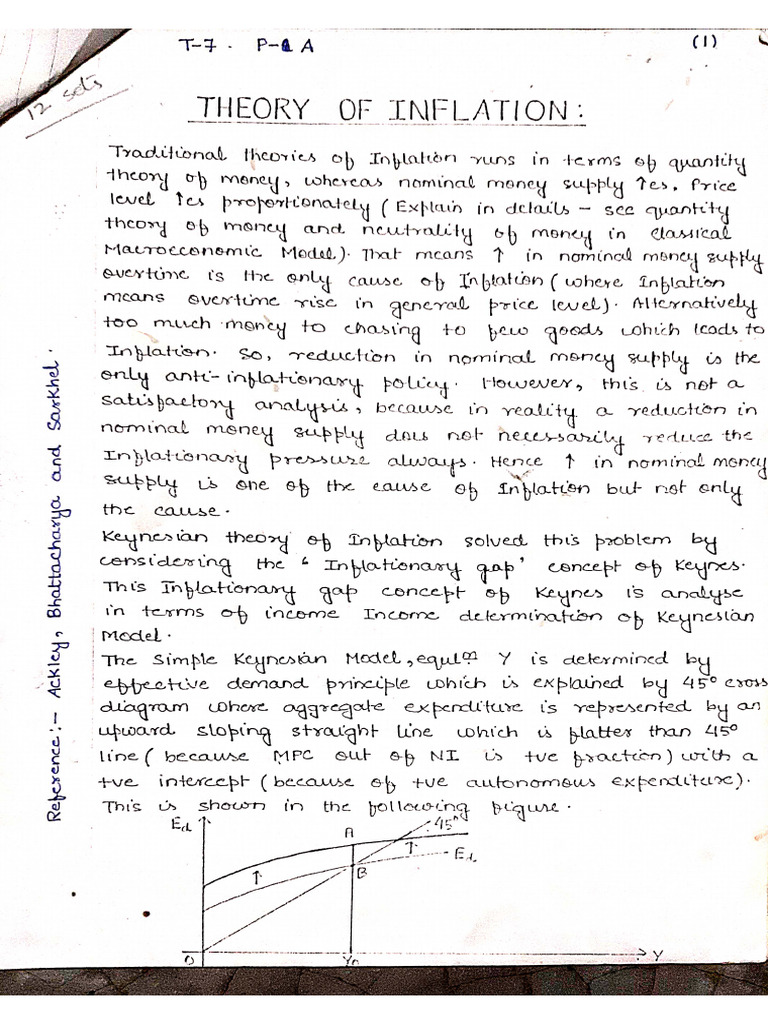 T-7. P-1 A
(1)
12 sets
THEORY OF INFLATION:
Traditional theories of Inflation runs in terms of quantity
theory of money, whereas nominal money supply ↑es. Price
level ↑es proportionately (Explain in details - see quantity
theory of money and neutrality of money in classical
Macroeconomic Model). That means ↑ in nominal money supply
overtime is the only cause of Inflation (where Inflation
means overtime rise in general price level). Alternatively
too much money to chasing to few goods which leads to
Inflation. So, reduction in nominal money supply is the
only anti-inflationary policy. However, this is not a
satisfactory analysis, because in reality a reduction in
nominal money supply does not necessarily reduce the
Inflationary pressure always. Hence ↑ in nominal money
supply is one of the cause of Inflation but not only
the cause.
Keynesian theory of Inflation solved this problem by
considering the 'Inflationary gap' concept of Keynes.
This Inflationary gap concept of Keynes is analyse
in terms of income Income determination of Keynesian
Model.
The Simple Keynesian Model, equlᵐ Y is determined by
effective demand principle which is explained by 45° cross
diagram where aggregate expenditure is represented by an
upward sloping straight line which is flatter than 45°
line (because MPC out of NI is +ve fraction) with a
+ve intercept (because of +ve autonomous expenditure).
This is shown in the following figure.
Reference:- Ackley, Bhattacharya and Sarkhel.
Ed
A
45°
↑
↑
Ed
B
O
Y0
Y